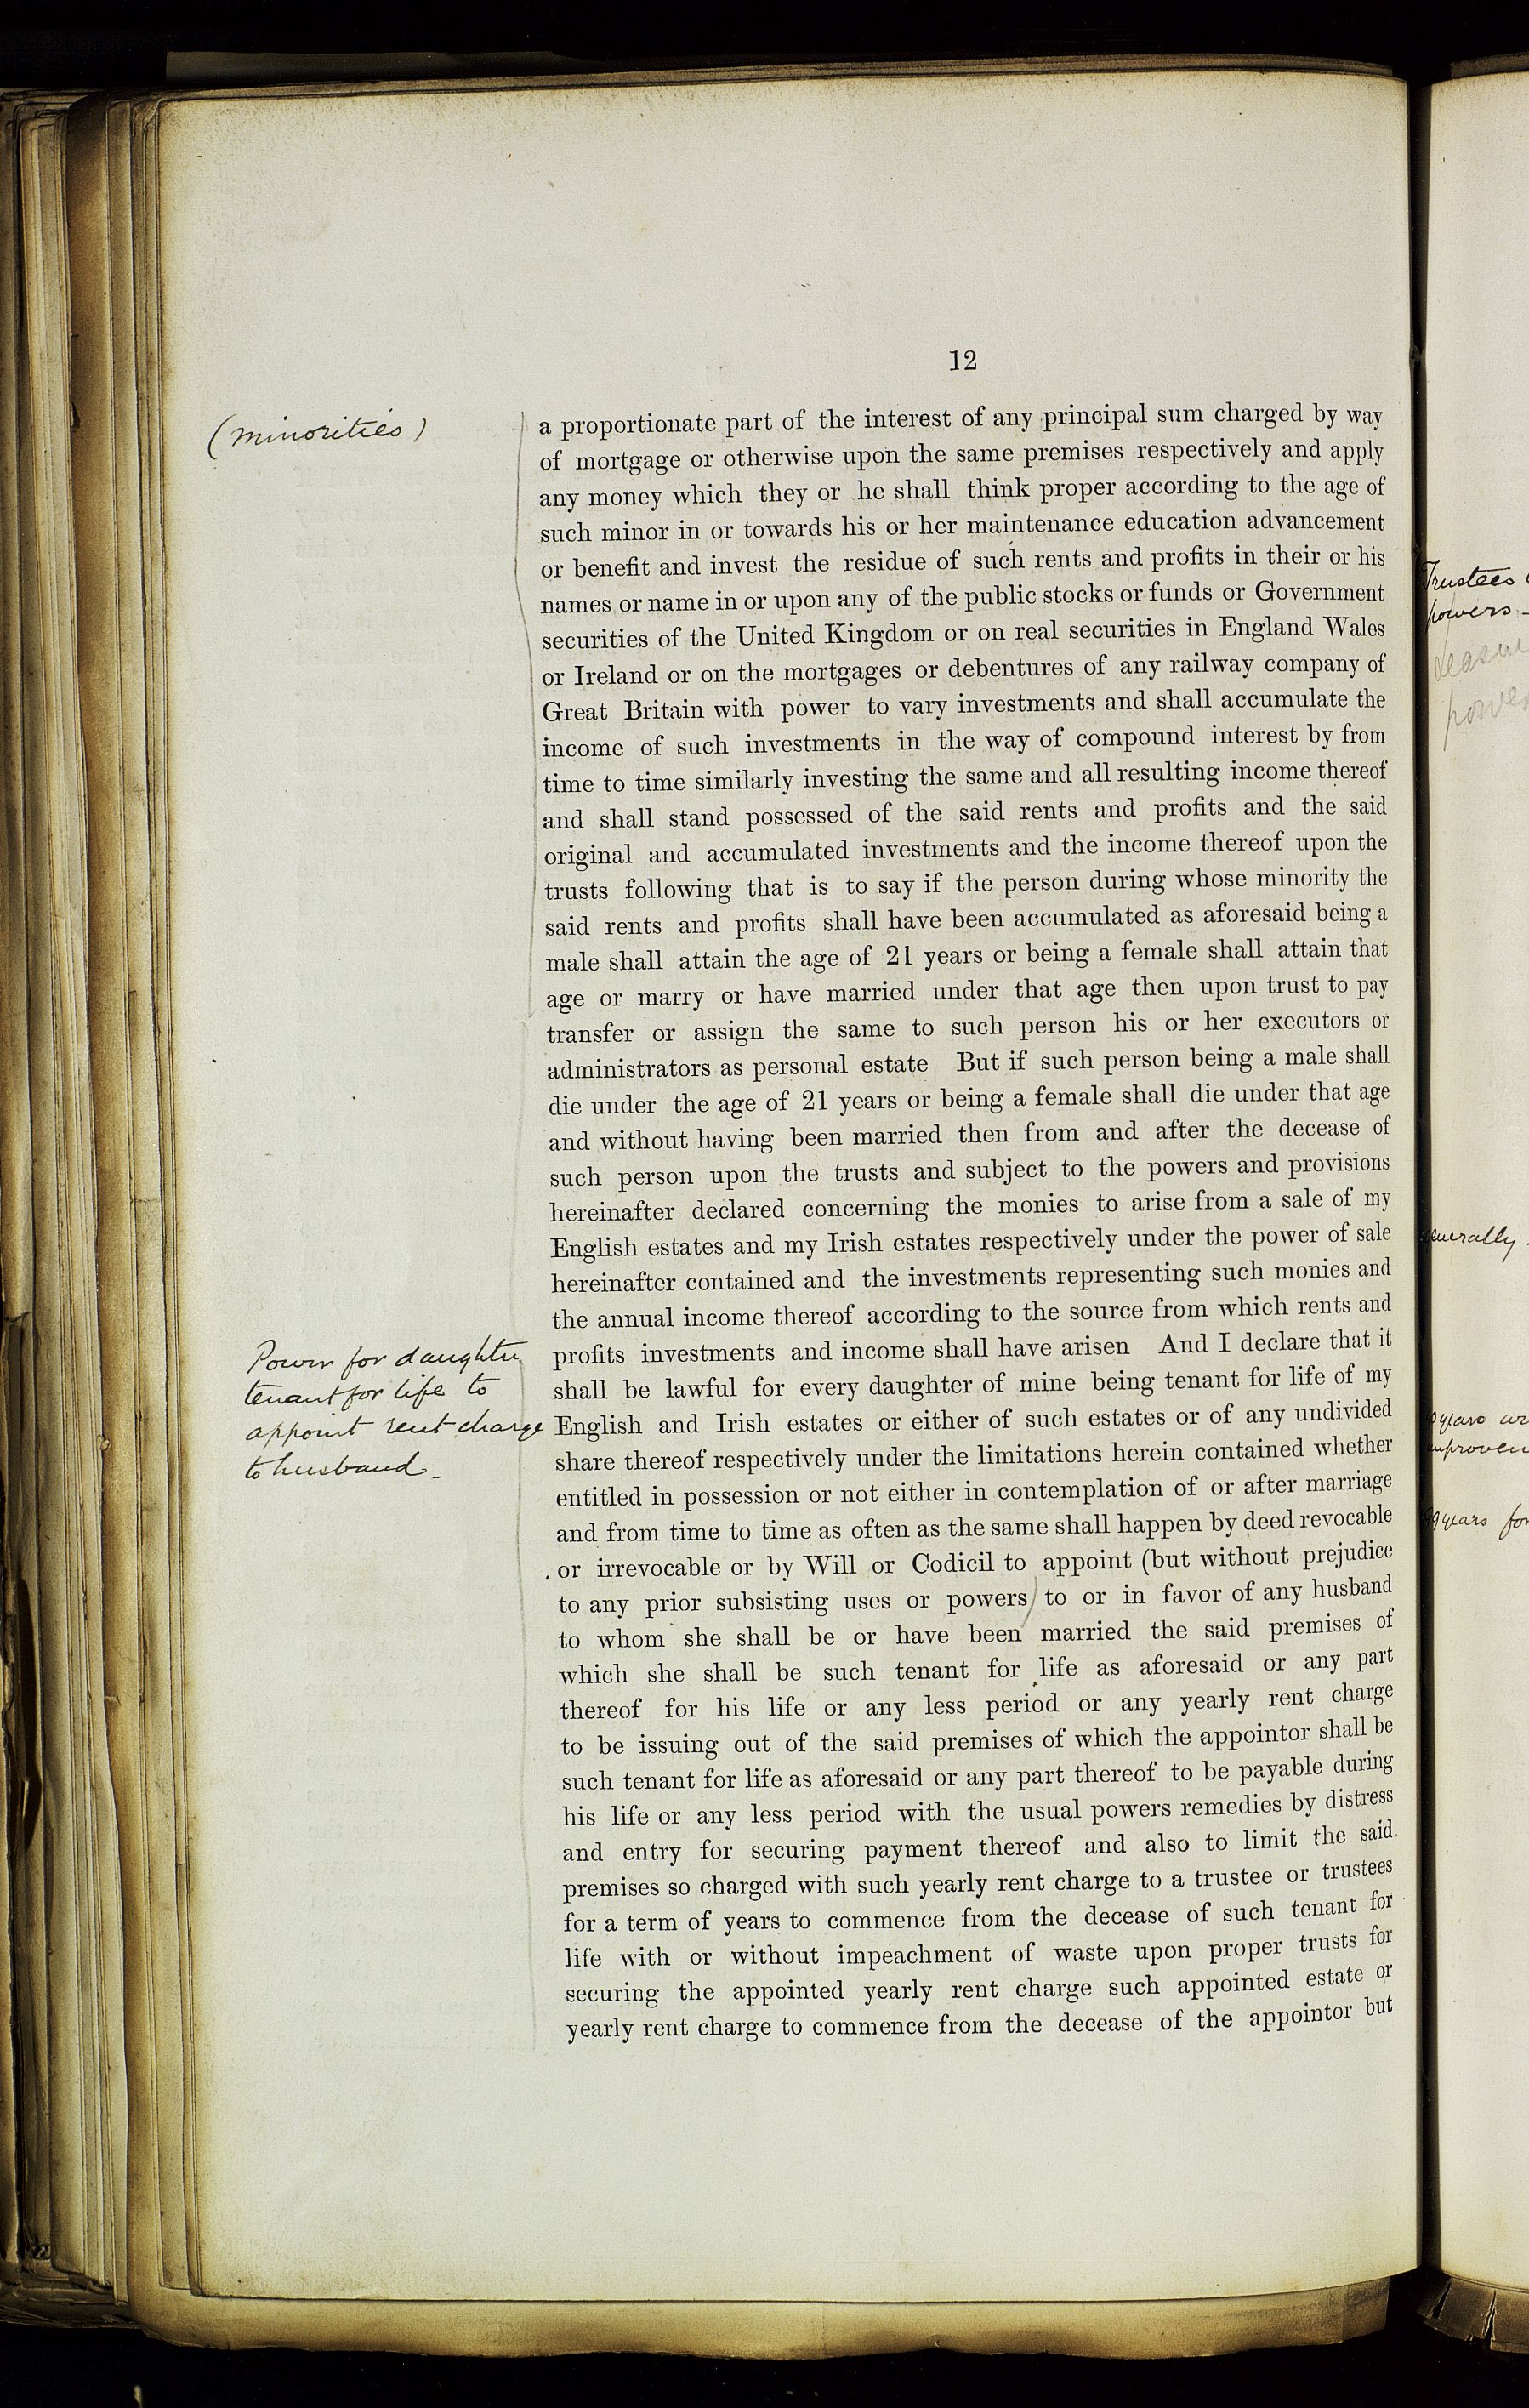 12
(minorities)
a proportionate part of the interest of any principal sum charged by way
of mortgage or otherwise upon the same premises respectively and apply
any money which they or he shall think proper according to the age of
such minor in or towards his or her maintenance education advancement
or benefit and invest the residue of such rents and profits in their or his
names or name in or upon any of the public stocks or funds or Government
securities of the United Kingdom or on real securities in England Wales
or Ireland or on the mortgages or debentures of any railway company of
Great Britain with power to vary investments and shall accumulate the
income of such investments in the way of compound interest by from
time to time similarly investing the same and all resulting income thereof
and shall stand possessed of the said rents and profits and the said
original and accumulated investments and the income thereof upon the
trusts following that is to say if the person during whose minority the
said rents and profits shall have been accumulated as aforesaid being a
male shall attain the age of 21 years or being a female shall attain that
age or marry or have married under that age then upon trust to pay
transfer or assign the same to such person his or her executors or
administrators as personal estate But if such person being a male shall
die under the age of 21 years or being a female shall die under that age
and without having been married then from and after the decease of
such person upon the trusts and subject to the powers and provisions
hereinafter declared concerning the monies to arise from a sale of my
English estates and my Irish estates respectively under the power of sale
hereinafter contained and the investments representing such monies and
the annual income thereof according to the source from which rents and
profits investments and income shall have arisen And I declare that it
shall be lawful for every daughter of mine being tenant for life of my
English and Irish estates or either of such estates or of any undivided
share thereof respectively under the limitations herein contained whether
entitled in possession or not either in contemplation of or after marriage
and from time to time as often as the same shall happen by deed revocable
or irrevocable or by Will or Codicil to appoint (but without prejudice
to any prior subsisting uses or powers) to or in favor of any husband
to whom she shall be or have been married the said premises of
which she shall be such tenant for life as aforesaid or any part
thereof for his life or any less period or any yearly rent charge
to be issuing out of the said premises of which the appointor shall be
such tenant for life as aforesaid or any part thereof to be payable during
his life or any less period with the usual powers remedies by distress
and entry for securing payment thereof and also to limit the said
premises so charged with such yearly rent charge to a trustee or trustees
for a term of years to commence from the decease of such tenant for
life with or without impeachment of waste upon proper trusts for
securing the appointed yearly rent charge such appointed estate or
yearly rent charge to commence from the decease of the appointor but
Power for daughter
tenant for life to
appoint rent charge
to husband
Trustees
powers